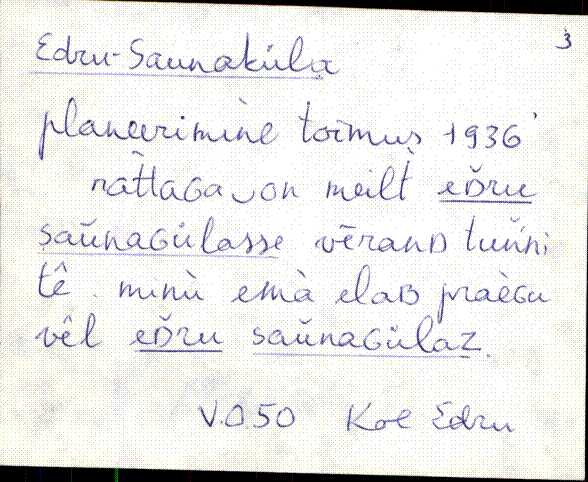 3
Edru-Saunaküla
planeerimine toimus 1936'
rat̀taGa on meilt̀ eD̆ru
saŭnaGülasse vēranD tuňni
tê. minù emà elaB praèGu
vêl eD̆ru saŭnaGülaZ.
V.O50 Koe Edru